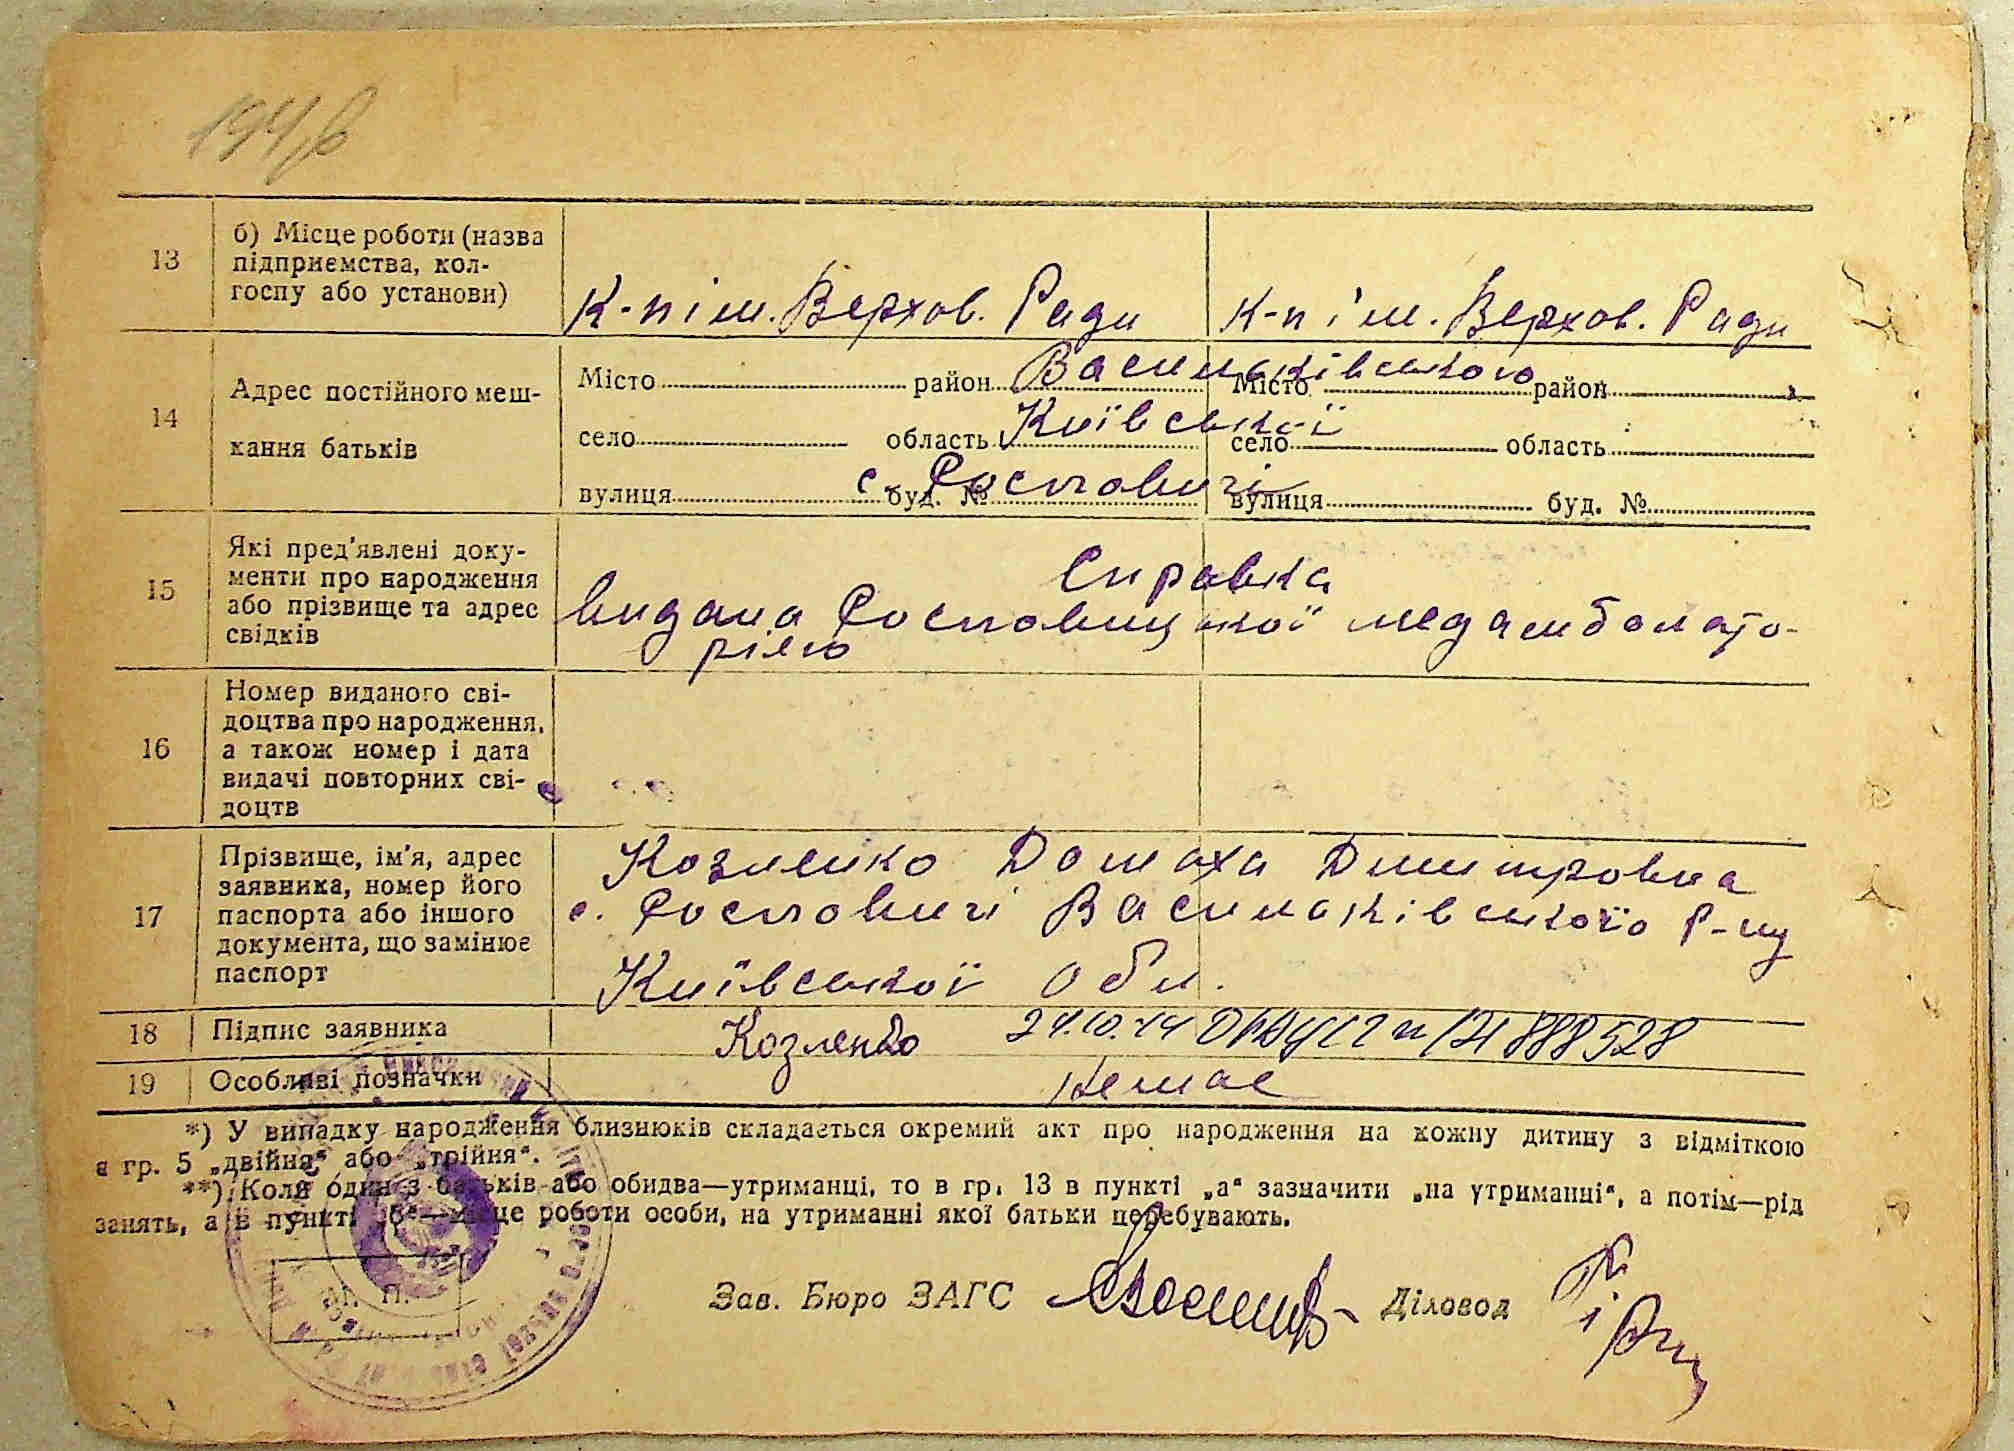 194
13
б) Місце роботи (назва
підприємства, кол-
госпу або установи)
К-п ім. Верхов. Ради
К-п ім. Верхов. Ради
14
Адрес постійного меш-
кання батьків
Місто район Васильківського Місто район
село область Київської село область
вулиця буд. № с. Россловичі вулиця буд. №
15
Які пред'явлені доку-
менти про народження
або прізвище та адрес
свідків
Справка
видана медамболато-
рією
16
Номер виданого сві-
доцтва про народження,
а також номер і дата
видачі повторних сві-
доцтв
17
Прізвище, ім'я, адрес
заявника, номер його
паспорта або іншого
документа, що замінює
паспорт
Козленко Домаха Дмитровна
с. Васильківського р-ну
Київської обл.
18
Підпис заявника
Козленко 888528
19
Особливі позначки
Немає
*) У випадку народження близнюків складається окремий акт про народження на кожну дитину з відміткою
в гр. 5 „двійня" або „трійня".
**) Коли один з батьків або обидва—утриманці, то в гр. 13 в пункті „а" зазначити „на утриманні", а потім—рід
занять, а в пункті „б"—місце роботи особи, на утриманні якої батьки перебувають.
М. П.
Зав. Бюро ЗАГС
Діловод